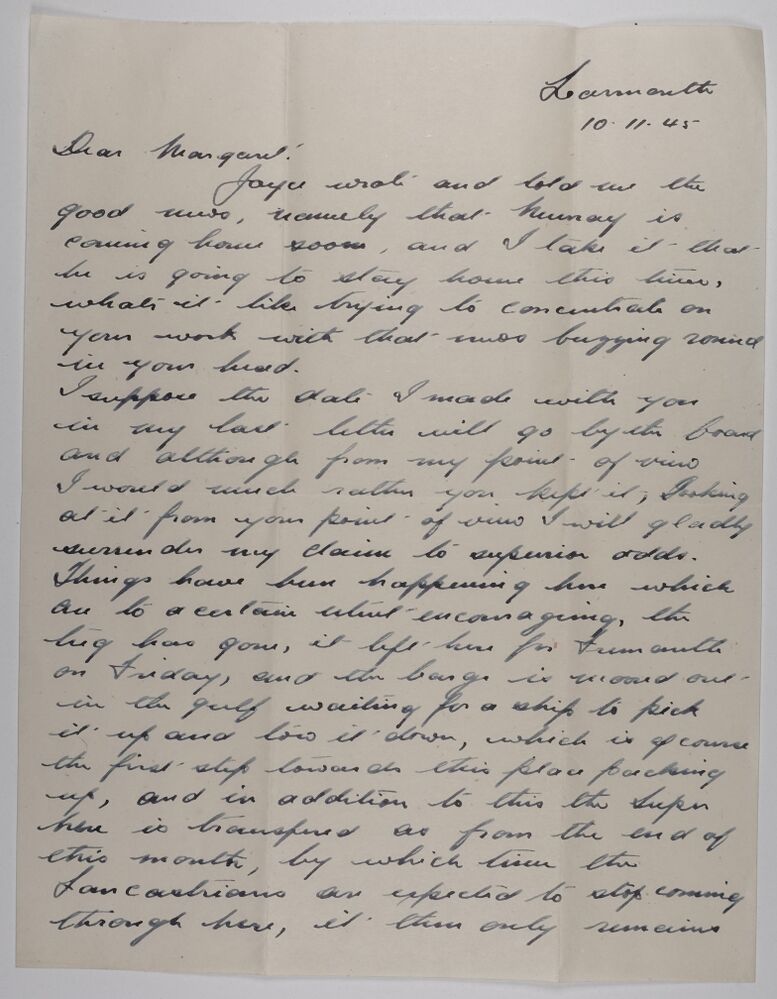 Learmonth
10-11-45
Dear Margaret:
Joyce wrote and told me the
good news, namely that Murray is
coming home soon, and I take it that
he is going to stay home this time,
whats it like trying to concentrate on
your work with that news buzzing round
in your head.
I suppose the date I made with you
in my last letter will go by the board
and although from my point of view
I would much rather you kept it, Looking
at it from your point of view I will gladly
surrender my claim to superior odds.
Things have been happening here which
are to a certain extent encouraging, the
tug has gone, it left here for Fremantle
on Friday, and the barge is moored out
in the gulf waiting for a ship to pick
it up and tow it down, which is of course
the first step towards this place packing
up, and in addition to this the Super
here is transfered as from the end of
this month, by which time the
Lancastrians are expected to stop coming
through here, it then only remains